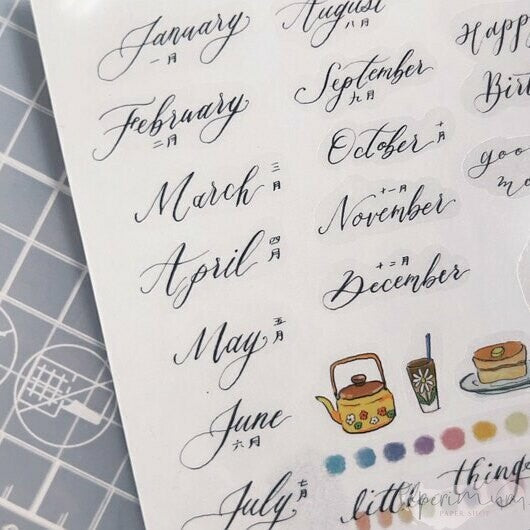 January
一月
February
二月
March
三月
April
四月
May
五月
June
六月
July
七月
August
八月
September
九月
October
十月
November
十一月
December
十二月
Happ
Birt
goo
mo
little
things
PaperiMum
PAPER SHOP